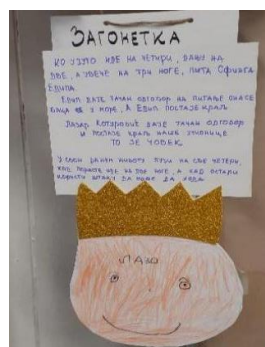 ЗАГОНЕТКА
КО УЈУТРО ИДЕ НА ЧЕТИРИ, ДАЊУ НА
ДВЕ, А УВЕЧЕ НА ТРИ НОГЕ, ПИТА СФИНГА
ЕДИПА.
ЕДИП ДАЈЕ ТАЧАН ОДГОВОР НА ПИТАЊЕ ОНА СЕ
БАЦА У МОРЕ, А ЕДИП ПОСТАЈЕ КРАЉ.
ЛАЗАР ДАЈЕ ТАЧАН ОДГОВОР
И ПОСТАЈЕ КРАЉ НАШЕ УЧИОНИЦЕ
ТО ЈЕ ЧОВЕК.
ЖИВОТА ПУЗИ НА СВЕ ЧЕТИРИ,
КАД ИДЕ НА ДВЕ НОГЕ, А КАД ОСТАРИ
КОРИСТИ ШТАКУ ДА МОЖЕ ДА ХОДА.
ЛАЗО